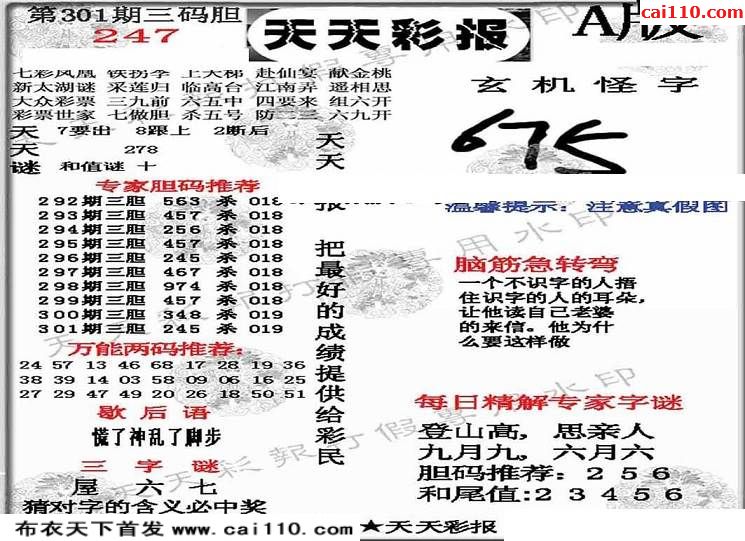 第301期三码胆
247
天天彩报
A版
cai110.com
七彩凤凰 铁拐李 上天梯 赴仙宴 献金桃
新太湖谜 采莲归 临高台 江南弄 遥相思
大众彩票 三九前 六五中 四要来 组六开
彩票世家 七做胆 杀五号 防二三 六九开
天 7要出 8跟上 2断后
天 278
谜 和值谜 十
专家胆码推荐
292期三胆 563 杀 018
293期三胆 457 杀 018
294期三胆 256 杀 018
295期三胆 457 杀 018
296期三胆 245 杀 018
297期三胆 467 杀 018
298期三胆 974 杀 018
299期三胆 457 杀 018
300期三胆 348 杀 019
301期三胆 245 杀 019
万能两码推荐:
24 57 13 46 68 17 28 19 36
38 39 14 03 58 09 06 16 25
27 29 47 49 20 26 18 50 51
歇后语
慌了神乱了脚步
三字谜
屋 六 七
猜对字的含义必中奖
天天 报 把最好的成绩提供给彩民
玄机怪字
675
温馨提示：注意真假图
脑筋急转弯
一个不识字的人捂
住识字的人的耳朵,
让他读自己老婆
的来信。他为什
么要这样做
每日精解专家字谜
登山高，思亲人
九月九，六月六
胆码推荐：2 5 6
和尾值:2 3 4 5 6
布衣天下首发 www.cai110.com ★天天彩报